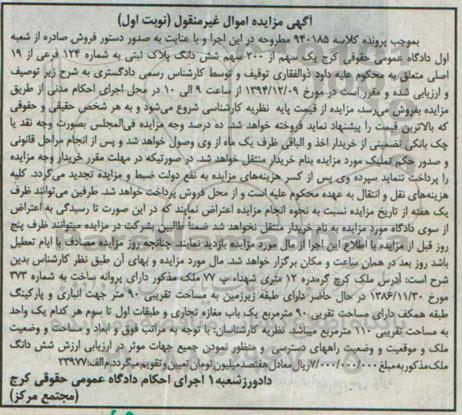 آگهی مزایده اموال غیرمنقول (نوبت اول)
بموجب پرونده کلاسه ۹۴۰۱۸۵ مطروحه در این اجرا و با عنایت به صدور دستور فروش صادره از شعبه
اول دادگاه عمومی حقوقی کرج یک سهم از ۲۰۰ سهم شش دانگ پلاک ثبتی به شماره ۱۲۴ فرعی از ۱۹
اصلی متعلق به محکوم علیه داود ذوالفقاری توقیف و توسط کارشناس رسمی دادگستری به شرح زیر توصیف
و ارزیابی شده و مقرر است در مورخ ۱۳۹۴/۱۲/۰۹ از ساعت ۹ الی ۱۰ در محل اجرای احکام مدنی از طریق
مزایده بفروش می‌رسد، مزایده از قیمت پایه نظریه کارشناسی شروع می‌شود و به هر شخص حقیقی و حقوقی
که بالاترین قیمت را پیشنهاد نماید فروخته خواهد شد. ده درصد وجه مزایده فی‌المجلس بصورت وجه نقد یا
چک بانکی تضمینی از خریدار اخذ و الباقی ظرف یک ماه از وی وصول خواهد شد و پس از انجام مراحل قانونی
و صدور حکم تملیک مورد مزایده بنام خریدار منتقل خواهد شد. در صورتیکه در مهلت مقرر خریدار وجه مزایده
را پرداخت ننماید سپرده وی پس از کسر هزینه‌های مزایده به نفع دولت ضبط و مزایده تجدید می‌گردد. کلیه
هزینه‌های نقل و انتقال به عهده محکوم علیه است و از محل فروش پرداخت خواهد شد. طرفین می‌توانند ظرف
یک هفته از تاریخ مزایده نسبت به نحوه انجام مزایده اعتراض نمایند که در این صورت تا رسیدگی به اعتراض
از سوی دادگاه مورد مزایده به نام خریدار منتقل نخواهد شد ضمنا طالبین بشرکت در مزایده میتوانند ظرف پنج
روز قبل از مزایده با اطلاع این اجرا از مال مورد مزایده بازدید نمایند چنانچه روز مزایده مصادف با ایام تعطیل
باشد روز بعد در همان ساعت و مکان برگزار خواهد شد. مال مورد مزایده و بهای آن طبق نظر کارشناس بدین
شرح است: آدرس ملک کرج گرمدره ۱۲ متری شهداست ۷۷ ملک مذکور دارای پروانه ساخت به شماره ۳۷۳
مورخ ۱۳۸۶/۱۱/۳۰ در حال حاضر دارای طبقه زیرزمین به مساحت تقریبی ۹۰ متر جهت انباری و پارکینگ
طبقه همکف دارای مساحت تقربی ۹۰ مترمربع یک باب مغازه تجاری و طبقات اول تا سوم هر کدام یک واحد
به مساحت تقریبی ۱۱۰ مترمربع میباشد. نظریه کارشناسان: با توجه به مراتب فوق و ابعاد و مساحت و وضعیت
ملک و موقعیت و وضعیت راههای دسترسی و منظور نمودن جمیع جهات موثر در ارزیابی ارزش شش دانگ
ملک مذکور به مبلغ ۷/۰۰۰/۰۰۰/۰۰۰ ریال معادل هفتصد میلیون تومان تعیین و تقویم میگردد. م الف: ۲۳۹۷۷
دادورز شعبه ۱ اجرای احکام دادگاه عمومی حقوقی کرج
(مجتمع مرکز)